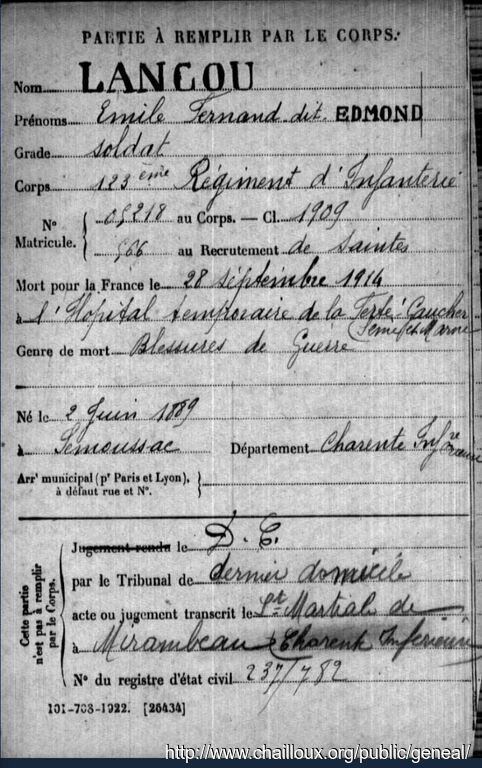 PARTIE À REMPLIR PAR LE CORPS.
Nom LANGOU
Prénoms Emile Fernand dit EDMOND
Grade soldat
Corps 123eme Régiment d'Infanterie
N° Matricule. { 05218 au Corps. — Cl. 1909
566 au Recrutement de Saintes
Mort pour la France le 28 septembre 1914
à l'Hopital temporaire de la Ferté-Gaucher
(Seine et Marne
Genre de mort Blessures de Guerre
Né le 2 Juin 1889
à Semoussac Département Charente Infre
Arrt municipal (pr Paris et Lyon),
à défaut rue et N°.
Cette partie n'est pas à remplir par le Corps.
Jugement rendu le D. C.
par le Tribunal de dernier domicile
acte ou jugement transcrit le St Martial de
à Mirambeau Charente Inférieure
N° du registre d'état civil 237/782
101-708-1922. [26434]
http://www.chailloux.org/public/geneal/